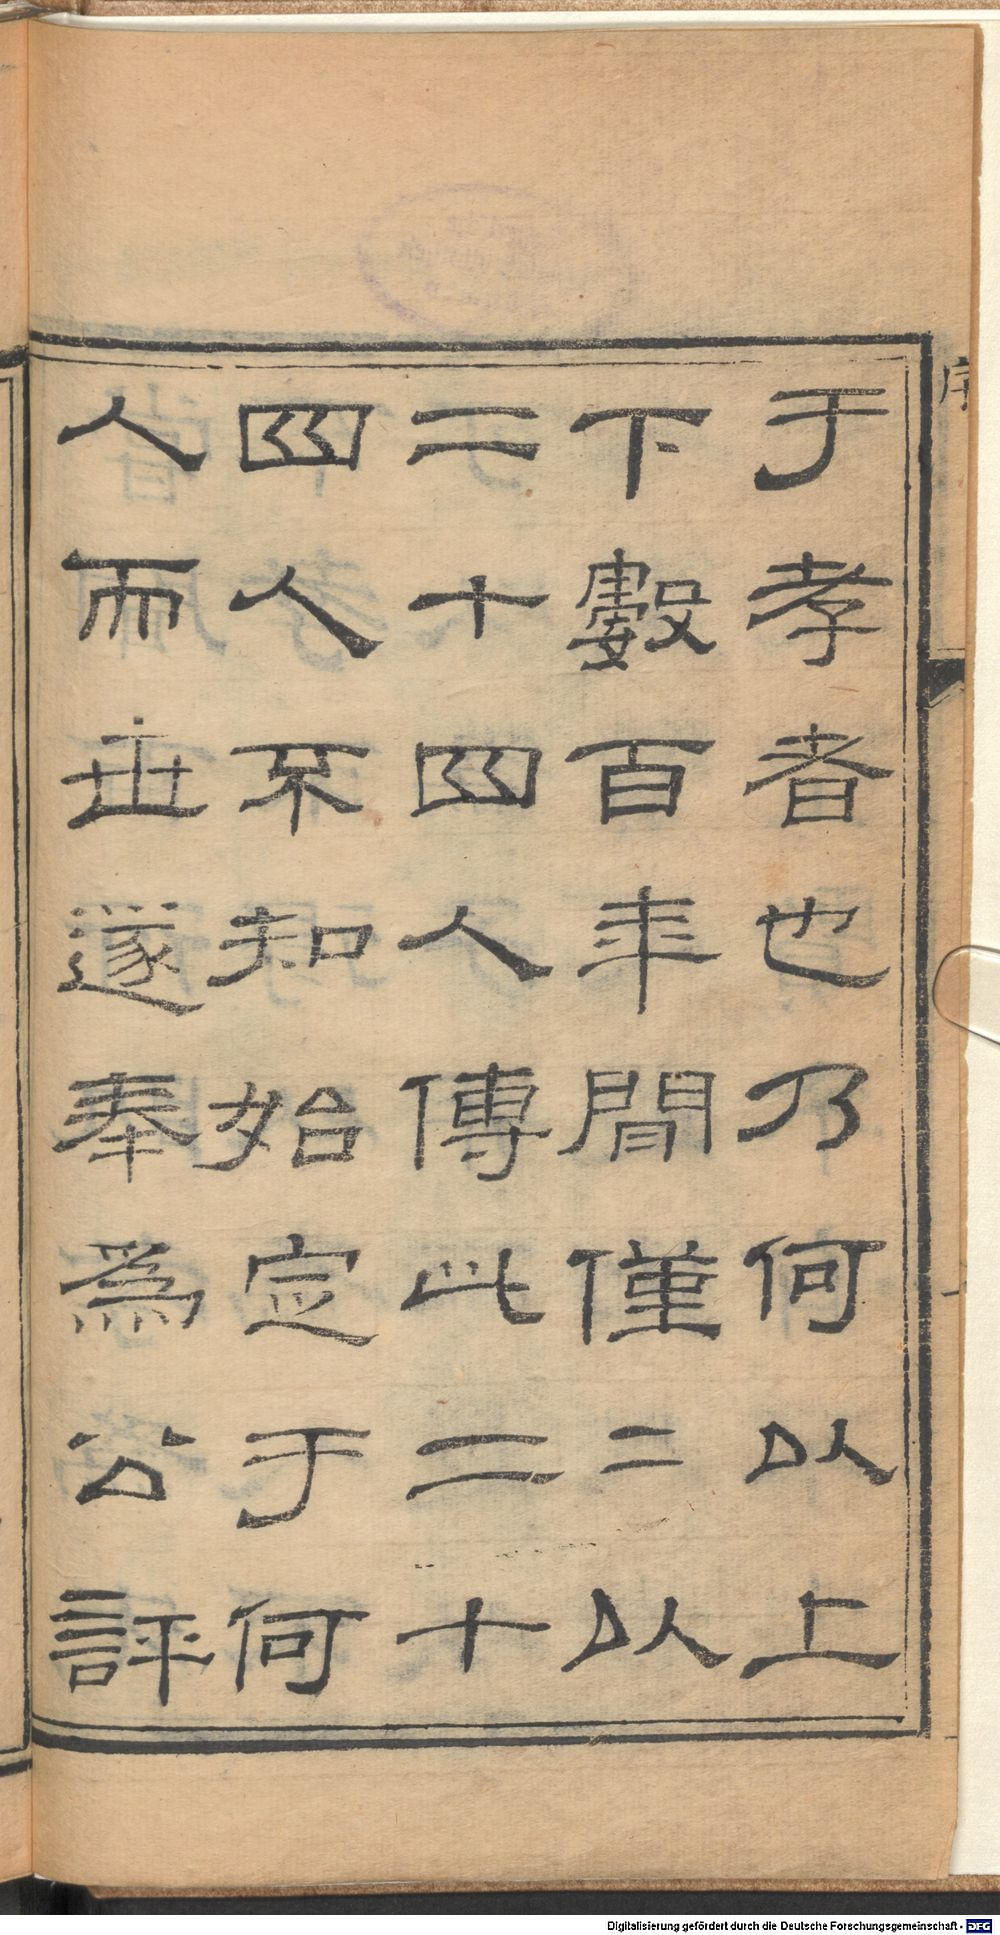 于孝者也乃何以上
下數百年間僅二以
二十四人傳此二十
四人不知始定于何
人而世遂奉為公評
序
一
Digitalisierung gefördert durch die Deutsche Forschungsgemeinschaft - DFG